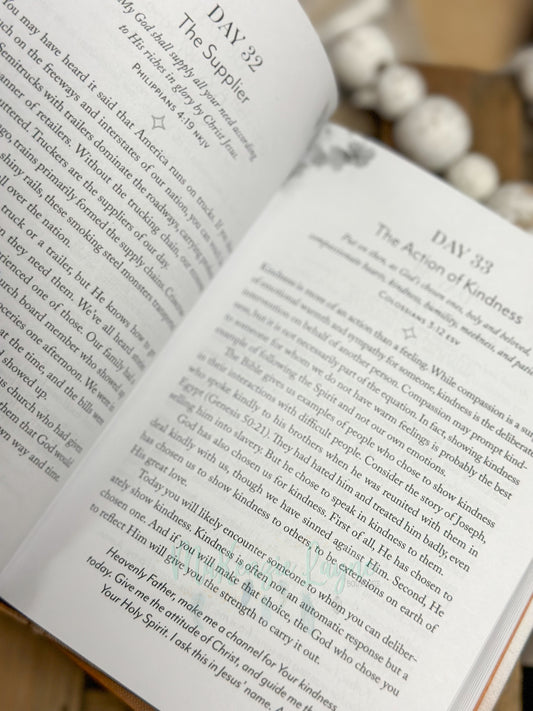 DAY 32
The Supplier
My God shall supply all your need according
to His riches in glory by Christ Jesus.
PHILIPPIANS 4:19 NKJV
You may have heard it said that America runs on trucks. If
uch on the freeways and interstates of our nation, you can
Semitrucks with trailers dominate the roadways, carrying
anner of retailers. Without the trucking chain, our
uttered. Truckers are the suppliers of our day.
ago, trains primarily formed the supply chains.
shiny rails, those smoking steel monsters
ll over the nation.
truck or a trailer, but He knows how
en they need them. We've all heard
erienced one of those. Our family
urch board member who showed
oceries one afternoon. We were
at the time, and the bills were
d showed up.
us church who had given
them that God would
wn way and time.
DAY 33
The Action of Kindness
Put on then, as God's chosen ones, holy and beloved,
compassionate hearts, kindness, humility, meekness, and
COLOSSIANS 3:12 ESV
Kindness is more of an action than a feeling. While compassion is a
of emotional warmth and sympathy for someone, kindness is the deliberate
intervention on behalf of another person. Compassion may prompt kind-
ness, but it is not necessarily part of the equation. In fact, showing kindness
to someone for whom we do not have warm feelings is probably the best
example of following the Spirit and not our own emotions.
The Bible gives us examples of people who chose to show kindness
in their interactions with difficult people. Consider the story of Joseph,
who spoke kindly to his brothers when he was reunited with them in
Egypt (Genesis 50:21). They had hated him and treated him badly, even
selling him into slavery. But he chose to speak in kindness to them.
God has also chosen us for kindness. First of all, He has chosen to
deal kindly with us, though we have sinned against him. Second, He
has chosen us to show kindness to others to be extensions on earth of
His great love.
Today you will likely encounter someone to whom you can deliber-
ately show kindness. Kindness is often not an automatic response but a
chosen one. And if you make that choice, the God who chose you
to reflect Him will give you the strength to carry it out.
Heavenly Father, make me a channel for Your kindness
today. Give me the attitude of Christ, and guide me
Your Holy Spirit. I ask this in Jesus' name.